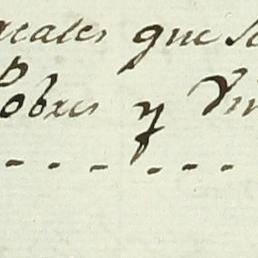 reales que se
Pobres y Vi